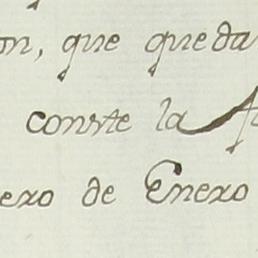 on, que queda
conste la
exo de Enexo